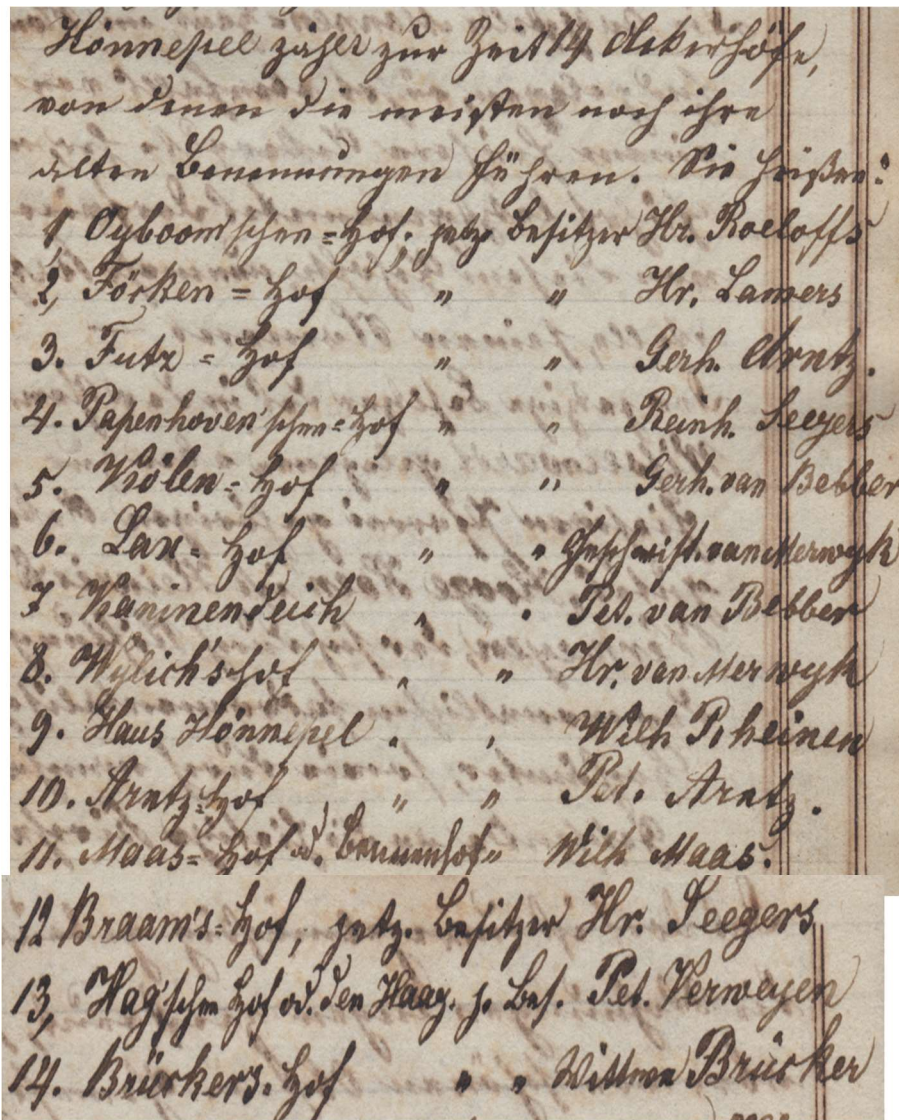 Hönnepel zählt zur Zeit 14 Ackerhöfe,
von denen die meisten noch ihre
alten Benennungen führen. Sie heißen:
1, Oyboom'schen=Hof; jetz. Besitzer Hr. Roeloffs
2, Förken = Hof " " Hr. Lamers
3. Futz = Hof " " Gerh. Arntz.
4. Papenhoven'schen=Hof " " Reinh. Seegers
5. Kölen = Hof " " Gerh. van Bebber
6. Lax = Hof " " Geschwist. van Merwyk
7 Kaninendeich " " Pet. van Bebber
8. Wylich'shof " " Hr. van Merwyk
9. Haus Hönnepel " " Wilh Rheinen
10. Arntz=Hof " " Pet. Arntz.
11. Maas=Hof od. " Wilh Maas.
12 Braam's=Hof, jetz. Besitzer Hr. Seegers
13, Hag'schen Hof od. den Haag. j. Bes. Pet. Verweyen
14. Brückers=Hof " " Wittwe Brücker